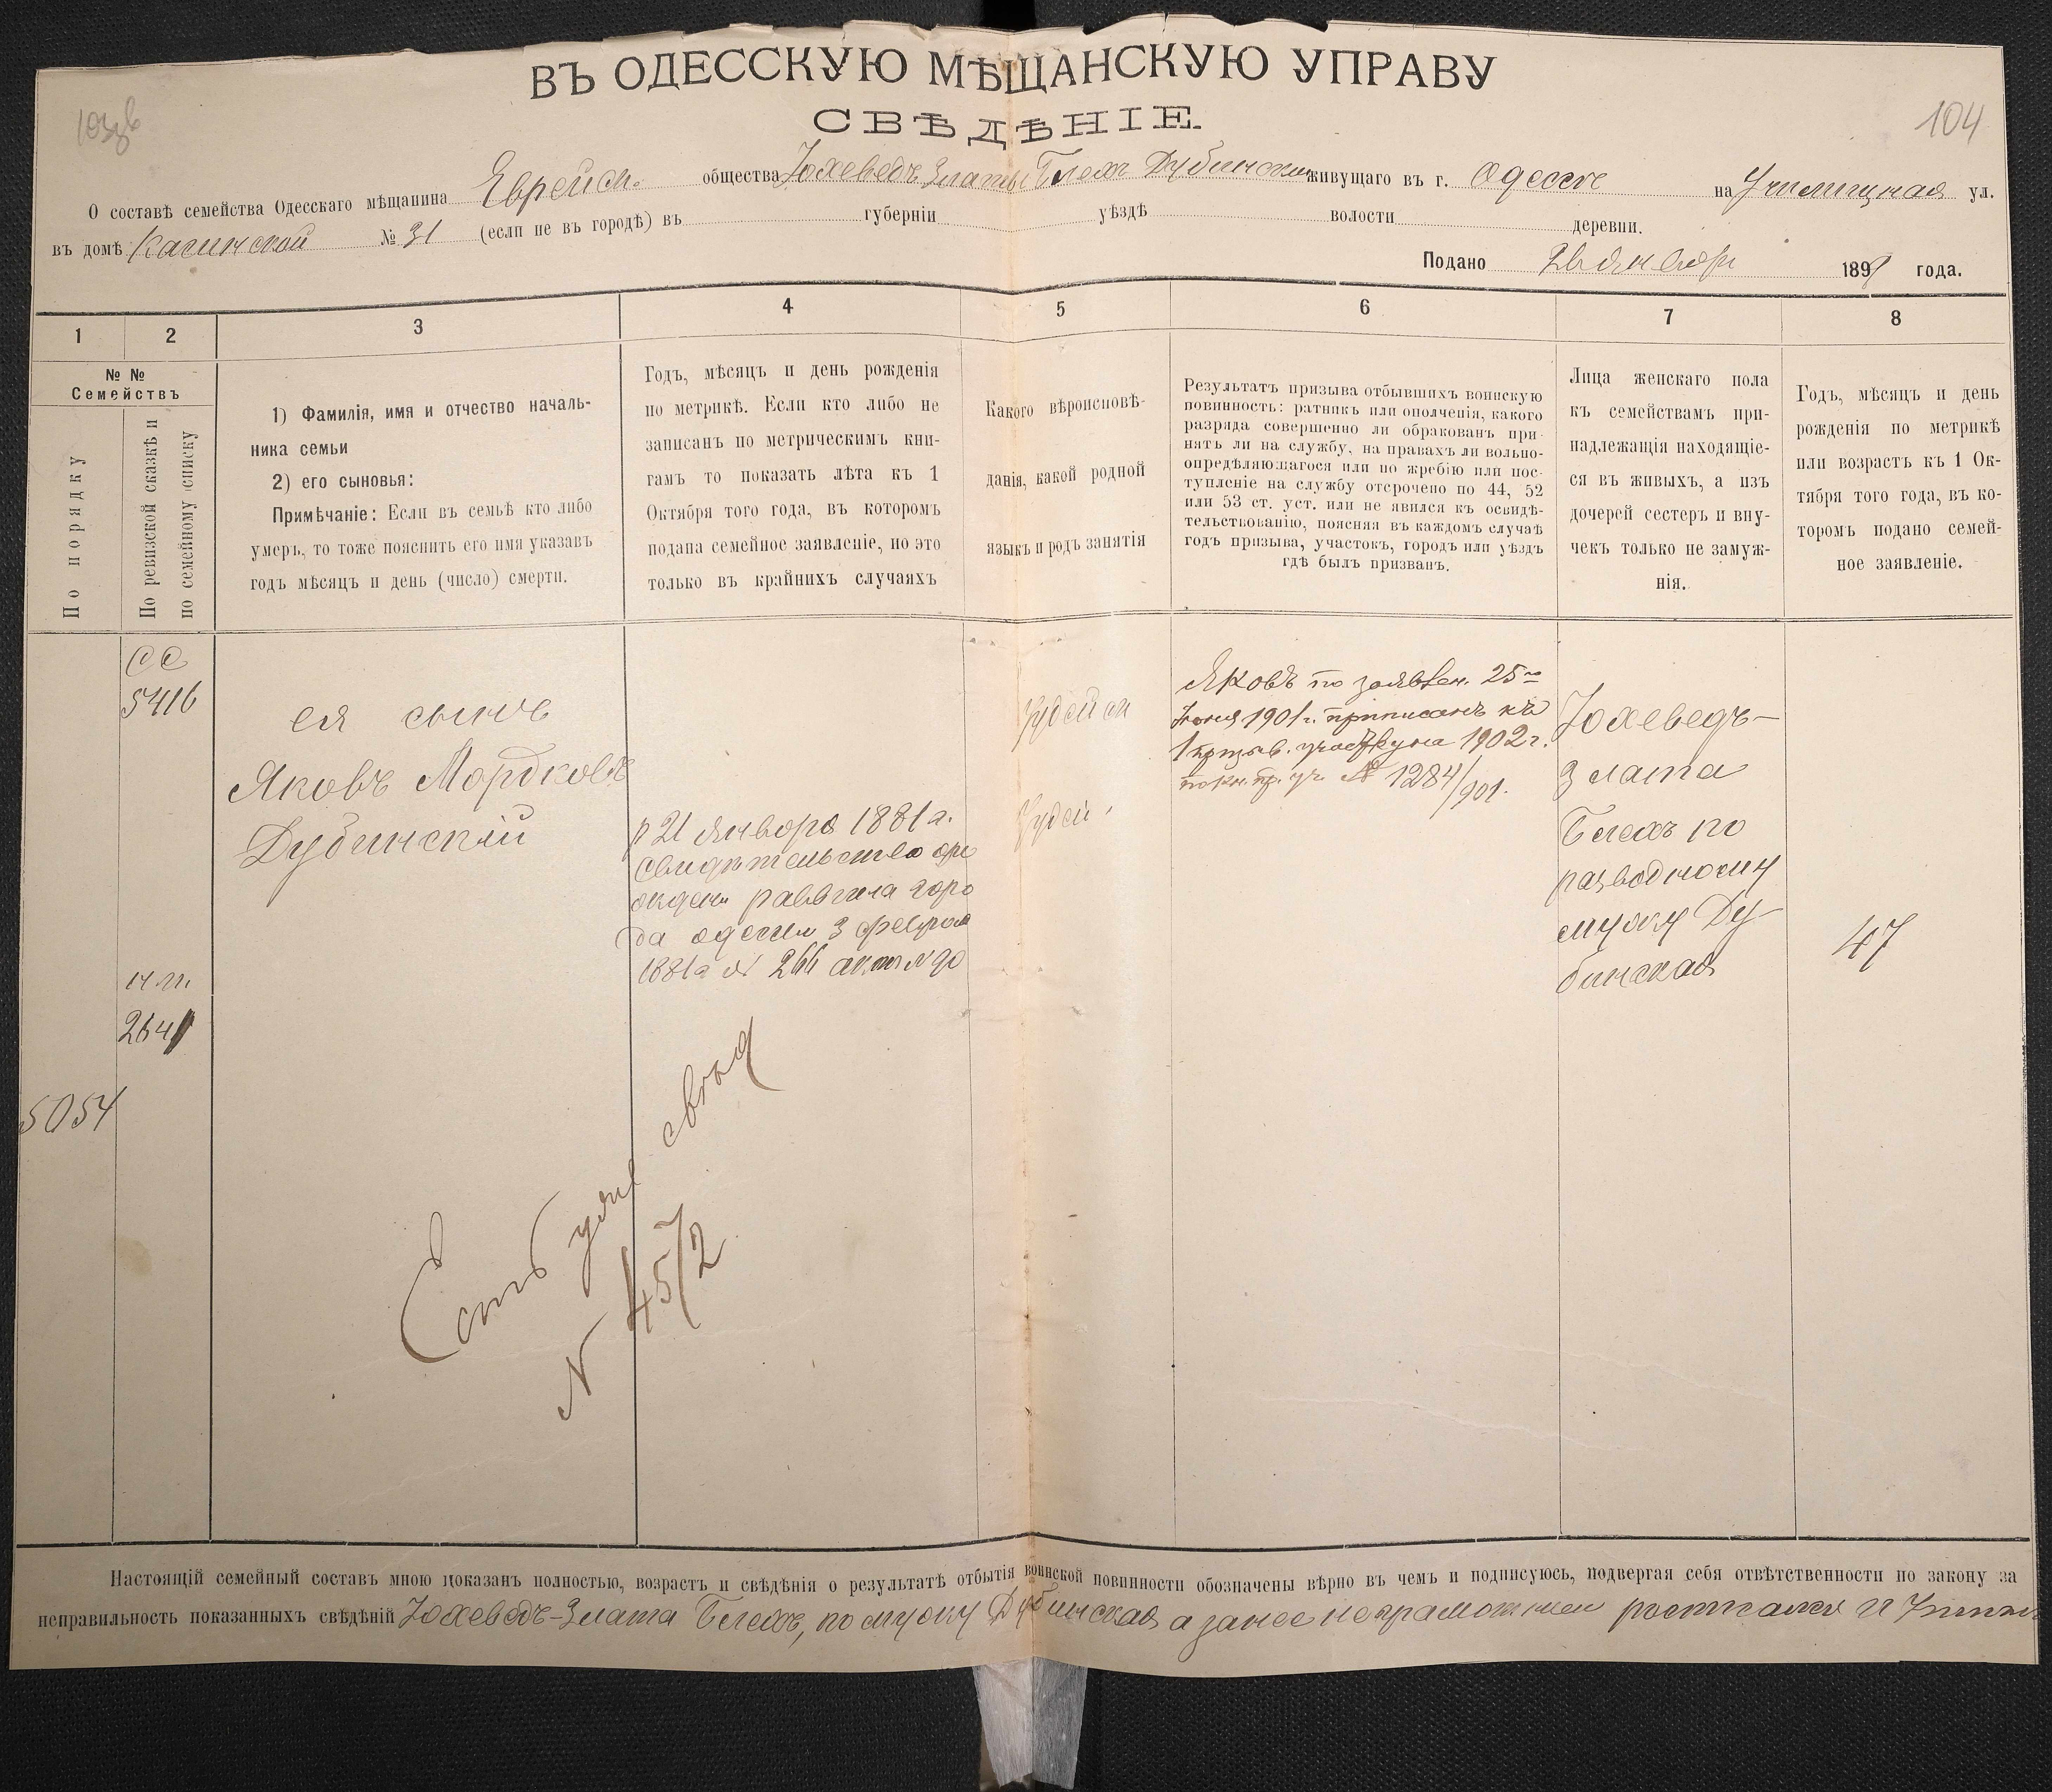 ВЪ ОДЕССКУЮ МѢЩАНСКУЮ УПРАВУ
СВѢДѢНІЕ.
104
О составѣ семейства Одесскаго мѣщанина Еврейск. общества Іохеведъ Златы Блехъ Дубинской живущаго въ г. Одессе на Училищная ул.
въ домѣ Качинской № 31 (если не въ городѣ) въ губерніи уѣздѣ волости деревни.
Подано 26 Января 1898 года.
1 2 3 4 5 6 7 8
№ №
Семействъ
По порядку
По ревизской сказкѣ и
по семейному списку
1) Фамилія, имя и отчество началь-
ника семьи
2) его сыновья:
Примѣчаніе: Если въ семьѣ кто либо
умеръ, то тоже пояснить его имя указавъ
годъ мѣсяцъ и день (число) смерти.
Годъ, мѣсяцъ и день рожденія
по метрикѣ. Если кто либо не
записанъ по метрическимъ кни-
гамъ то показать лѣта къ 1
Октября того года, въ которомъ
подана семейное заявленіе, но это
только въ крайнихъ случаяхъ
Какого вѣроисповѣ-
данія, какой родной
языкъ и родъ занятія
Результатъ призыва отбывшихъ воинскую
повинность: ратникъ или ополченія, какого
разряда совершенно ли обракованъ при-
нятъ ли на службу, на правахъ ли вольно-
опредѣляющагося или по жребію или пос-
тупленіе на службу отсрочено по 44, 52
или 53 ст. уст. или не явился къ освидѣ-
тельствованію, поясняя въ каждомъ случаѣ
годъ призыва, участокъ, городъ или уѣздъ
гдѣ былъ призванъ.
Лица женскаго пола
къ семействамъ при-
надлежащія находящіе-
ся въ живыхъ, а изъ
дочерей сестеръ и вну-
чекъ только не замуж-
нія.
Годъ, мѣсяцъ и день
рожденія по метрикѣ
или возрастъ къ 1 Ок-
тября того года, въ ко-
торомъ подано семей-
ное заявленіе.
СС
5416
2641
5054
ея сынъ
Яковъ Мордковъ
Дубинскій
р 21 Января 1881 г.
Свидѣтельство оде
раввина горо
да Одессы 3 Февраля
1881 г № 266 актъ № 90
Іудейск
Іудей
Яковъ по заявлен. 25го
Іюня 1901 г. приписанъ къ
1 призыв. участку на 1902 г.
№ 1284/901.
Іохеведъ-
Злата
Блехъ по
разводному
мужу Ду-
бинская
47
Есть уже свѣд
№ 4572
Настоящій семейный составъ мною показанъ полностью, возрастъ и свѣдѣнія о результатѣ отбытія воинской повинности обозначены вѣрно въ чемъ и подписуюсь, подвергая себя отвѣтственности по закону за
неправильность показанныхъ свѣдѣній Іохеведъ-Злата Блехъ, по мужу Дубинская а за нее неграмотную росписался